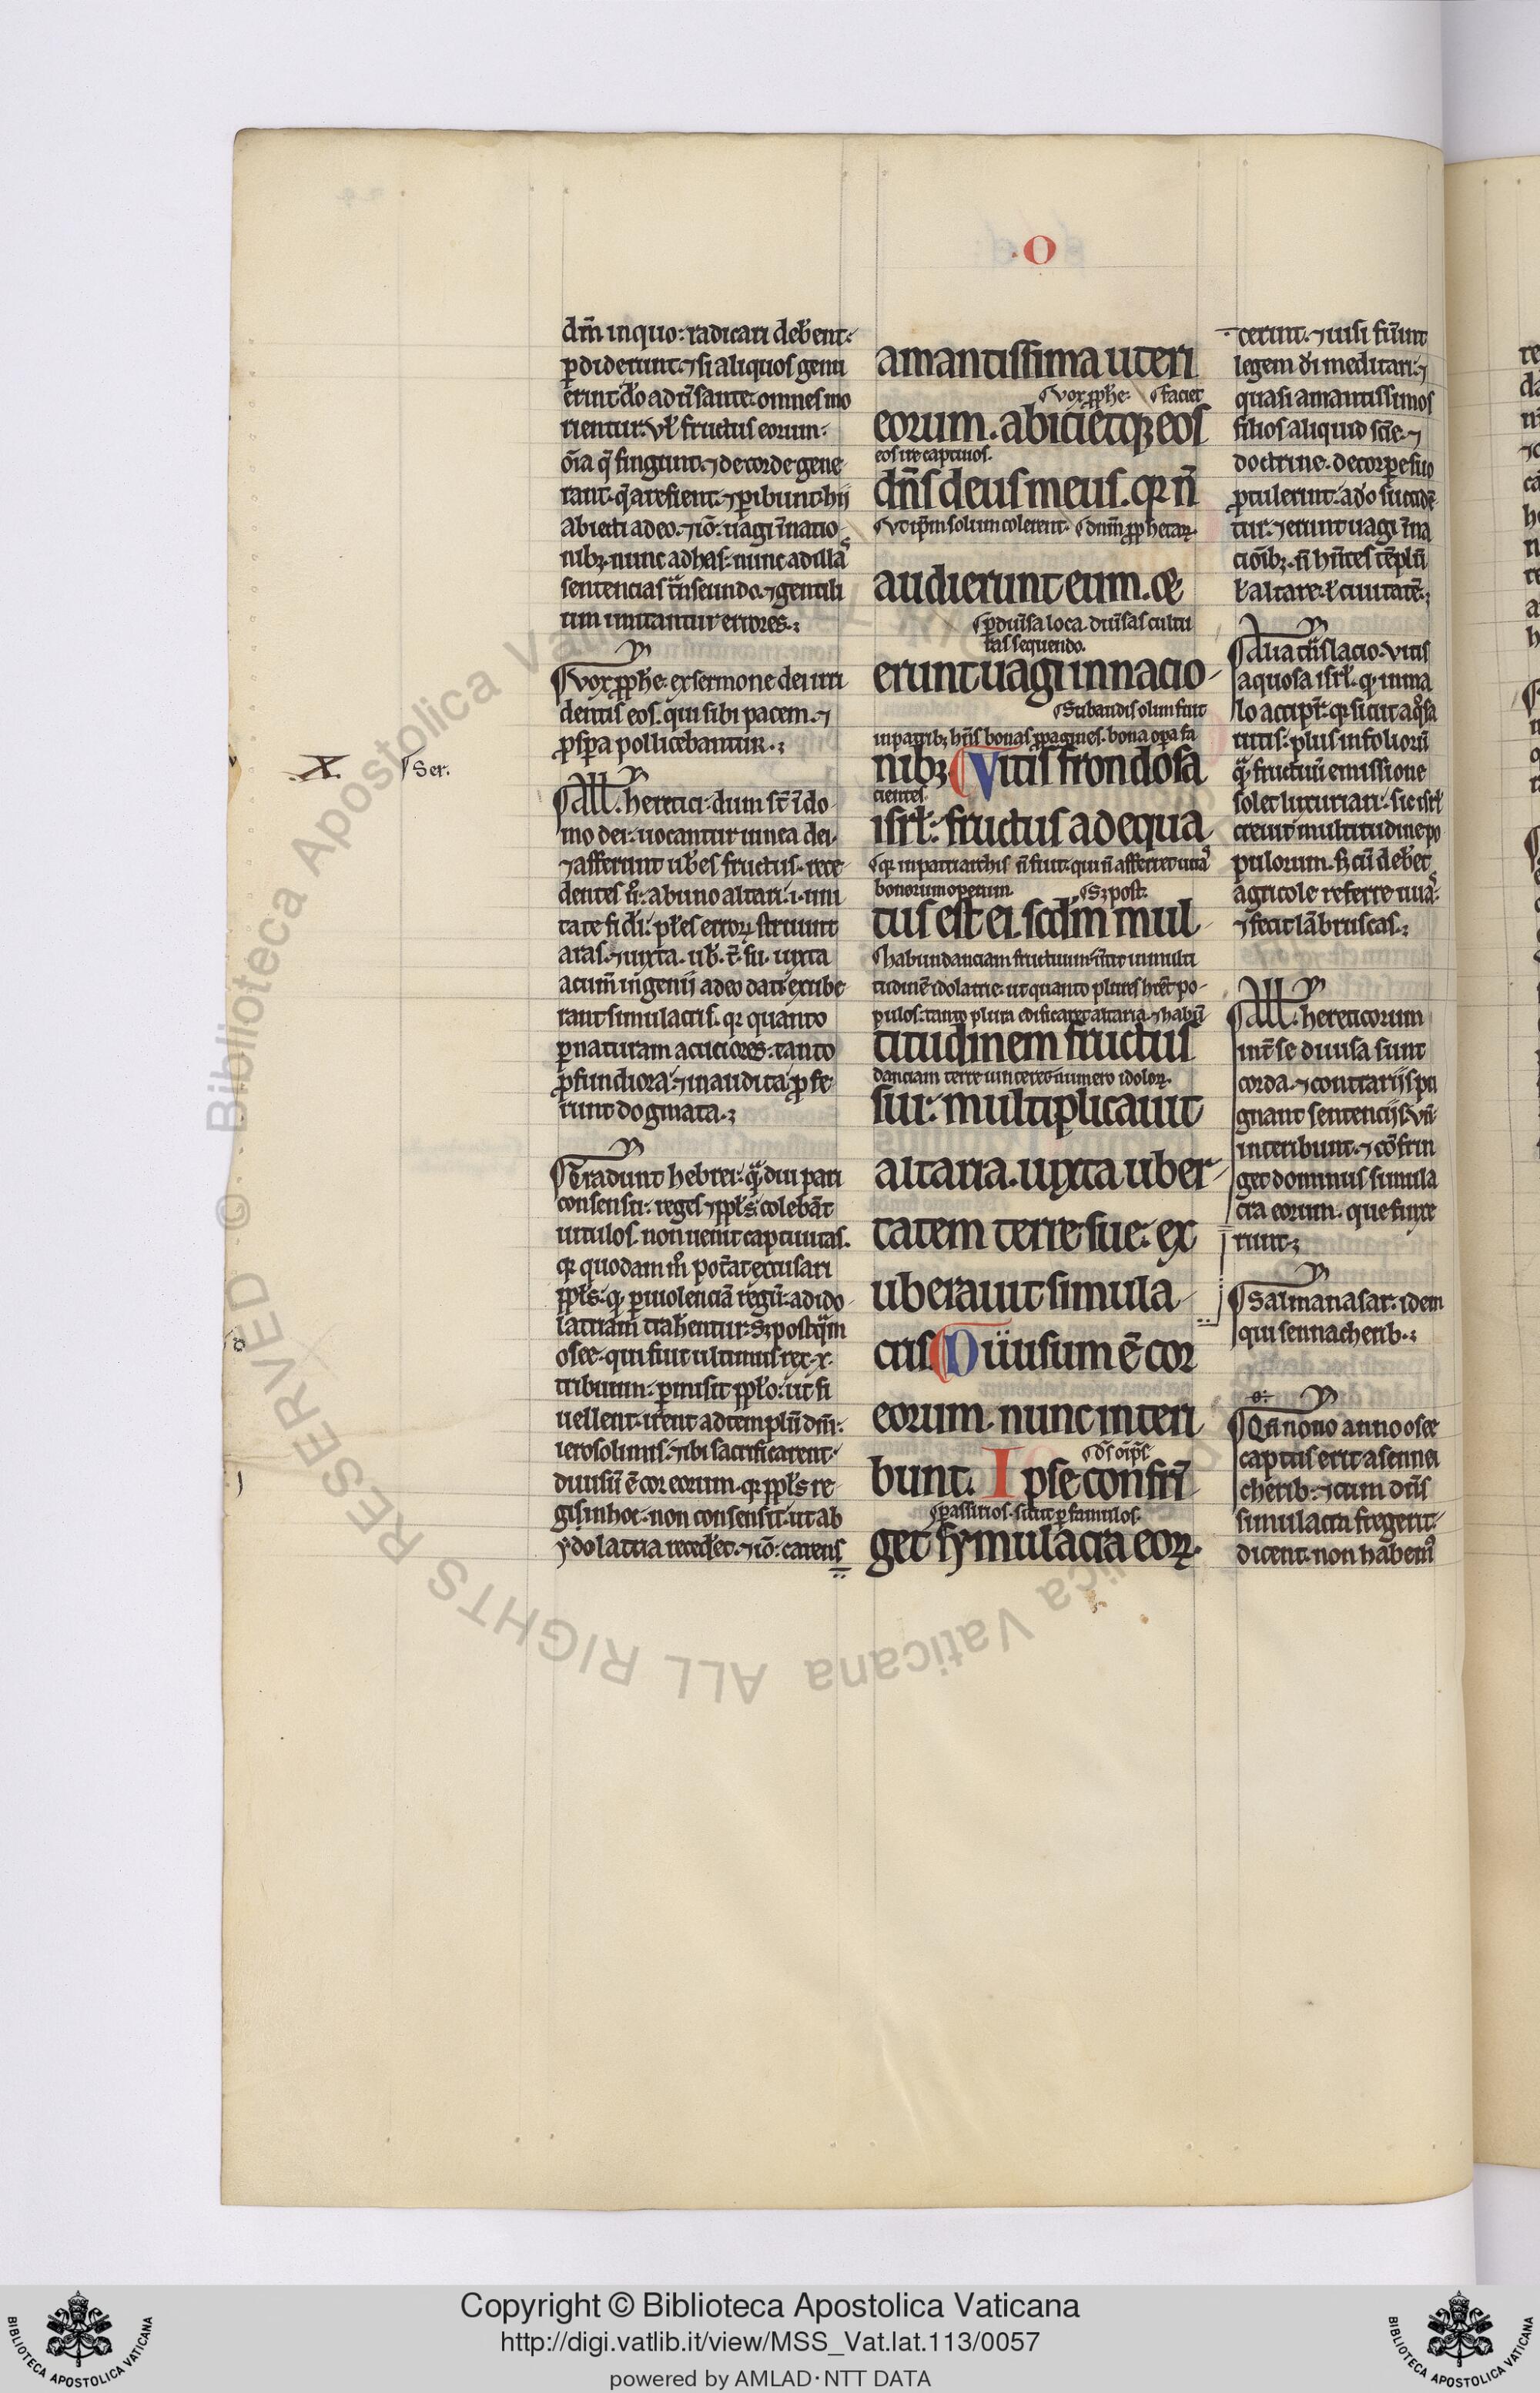 .O
dm̄ in quo: radicari deb̄ent.
ꝑdiderunt. ⁊ si aliquos genu
rientur. vl̄ fructus eorum.
abiecti adeo. ⁊ iō. uagi ī natio
nibꝫ. nunc ad has. nunc ad illas
um imitantur errores.
Vox ꝓphe. ex sermone dei uti
dentis eos. qui sibi pacem. ⁊
ꝓspa pollicebantur.
X
Ser.
All. heretici. dum st̄ ī do
mo dei. uocantur uinea dei.
⁊ afferunt ub̄es fructus. rece
dentes ū. ab uno altari. i. uni
tate fidi. pl̄es erroꝝ struunt
aras. ⁊ iuxta. ub̄. t̄. su. iuxta
acum̄ ingenij a deo dati exube
rant simulacris. qr quanto
ꝑ naturam acuciores. tanto
ꝓfundiora. ⁊ inaudita ꝓfe
runt dogmata.
Tradunt hebrei. qͣdiu pari
consensu. reges ⁊ ppl̄s colebāt
uitulos. non uenit captiuitas.
qr quodam mº pot̄at excusari
ppl̄s. q ꝑ uiolenciā regū. ad ido
latriam trahentur. Sꝫ postqͣm
osee. qui fuit ultimus rex .x.
tribuum. ꝑmisit ppl̄o. ut si
uellent. irent ad templū dn̄i.
ierosolimis. ⁊ ibi sacrificarent.
diuisū ē cor eorum. qr ppl̄s re
gis in hoc. non consensit. ut ab
ydolatria recederet. ⁊ iō. carens
amantissima uteri
vox ꝓphe. faciet
eorum. abicietqꝫ eos
eos ire captiuos.
dn̄s deus meus. qr n̄
Vt ipm̄ solum colerent.
audierunt eum. &
ꝑ diūsa loca. diūsas cultu
ras sequendo.
erunt uagi in nacio
olim fuit
in patribꝫ hn̄s bonas ꝓpagines. bona opa fa
nibꝫ Vitis frondosa
cientes.
isrl̄. fructus adequa
qr in patriarchis n̄ fuit. qui n̄ afferret uuas
bonorum operum Sꝫ post.
tus est ei. scdm̄ mul
habundanciam fructuum uertit in multi
tudinē idolatrie. ut quanto plures hret po
pulos. tanto plura edificaret altaria. ⁊ habū
titudinem fructus
danciam terre uinceret numero idoloꝝ.
sui. multiplicauit
altaria. iuxta uber
tatem terre sue. ex
uberauit simula
cris Diuisum ē cor
eorum. nunc interi
bunt. Ipse confrī
ꝑ assirios. sicut ꝑ famulos.
get symulacra eoꝝ.
legem di meditari. ⁊
quasi amantissimos
filios aliquid scīe. ⁊
doctrine. de corpe suo
ptulerunt. a do succidē
tur. ⁊ erunt uagi ī na
cionibꝫ. n̄ hn̄tes tēplū
l̄ altare. l̄ ciuitatē.
Alia tn̄slacio. vitis
aquosa isrl̄. q in ma
lo accipit. qr sicut aqͦsa
uitis. plus in folioru
qͣ. fructuū emissione
solet luxuriari. sic isrl̄
creuit multitudine po
pulorum. sꝫ cū deberet
agricole referre uuas.
⁊ fecit lābruscas.
All. hereticorum
int̄ se diuisa sunt
corda. ⁊ contrarijs pu
gnant sentencijs. Vn̄
interibunt. ⁊ cōfrin
get dominus simula
cra eorum. que finxe
runt.
Salmanasar. idem
qui sennacherib.
Qn̄ nono anno osee
captus erit a senna
cherib. ⁊ cum dn̄s
simulacra fregerit.
dicent. non habemꝰ
© Biblioteca Apostolica Vaticana ALL RIGHTS RESERVED
Copyright © Biblioteca Apostolica Vaticana
http://digi.vatlib.it/view/MSS_Vat.lat.113/0057
powered by AMLAD·NTT DATA
BIBLIOTECA APOSTOLICA VATICANA
BIBLIOTECA APOSTOLICA VATICANA